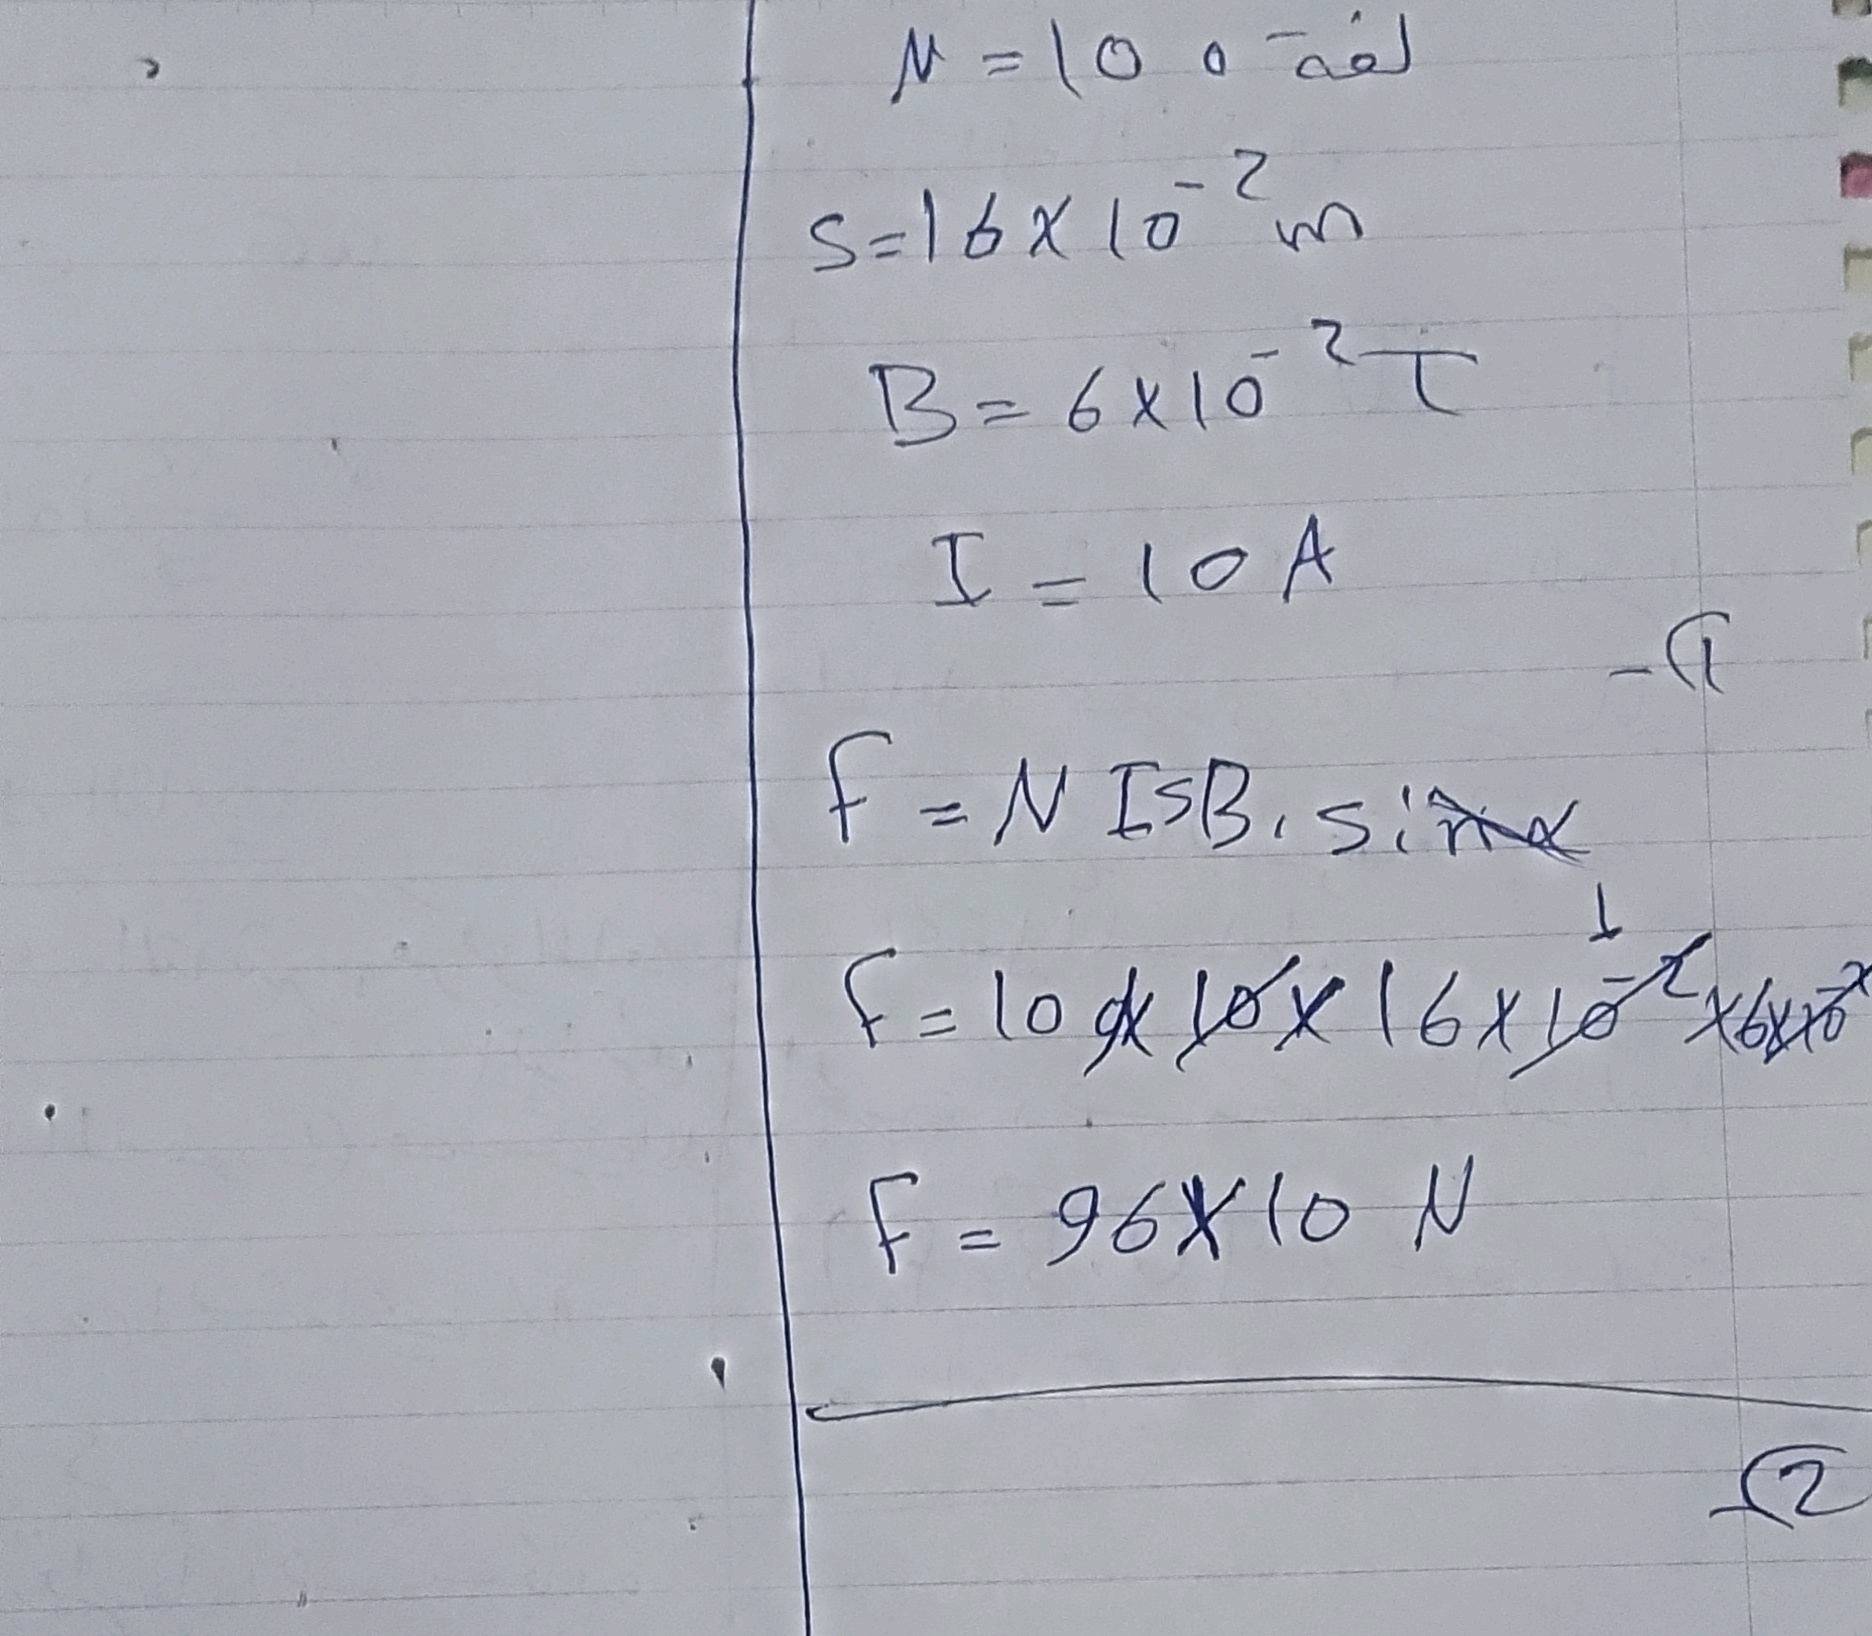 N = 100 لفة
S = 16 × 10⁻² m
B = 6 × 10⁻² T
I = 10 A
1-
F = N I S B . sin α
1
F = 100 × 10 × 16 × 10⁻² × 6 × 10⁻²
F = 96 × 10 N
2-